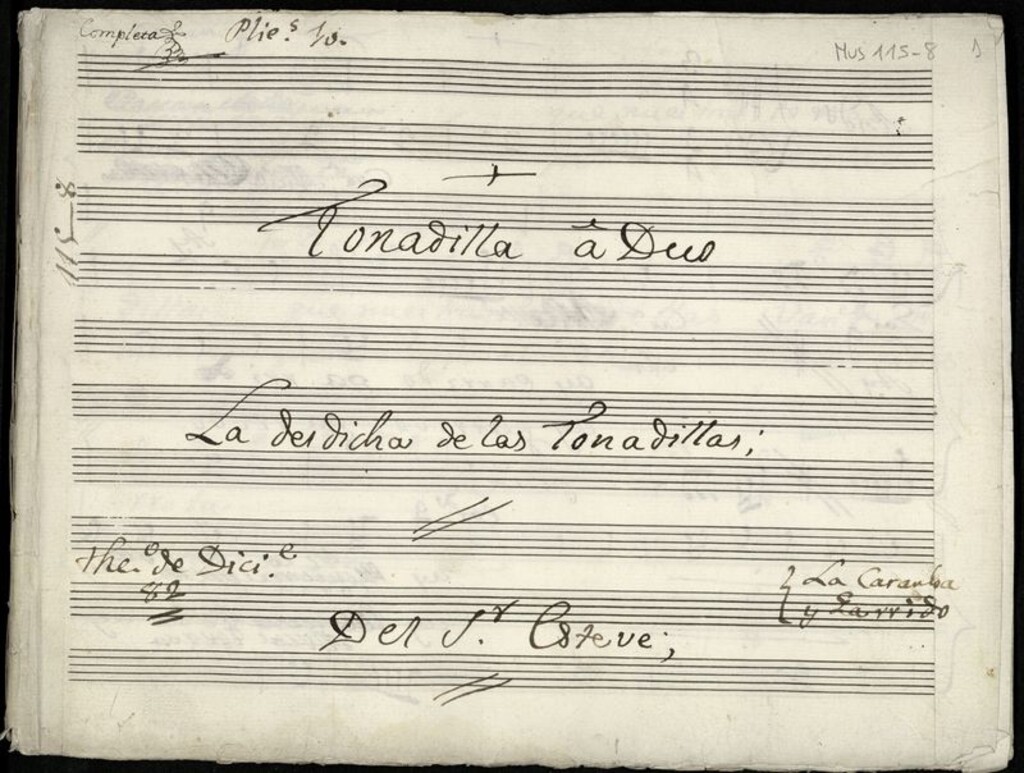 Completa Plie.s 10.
Mus 115-8
1
115-8
Tonadilla â Duo
La desdicha de las Tonadillas;
The.o de Dici.e
82
La Caramba
y Garrido
Del S.r Esteve;